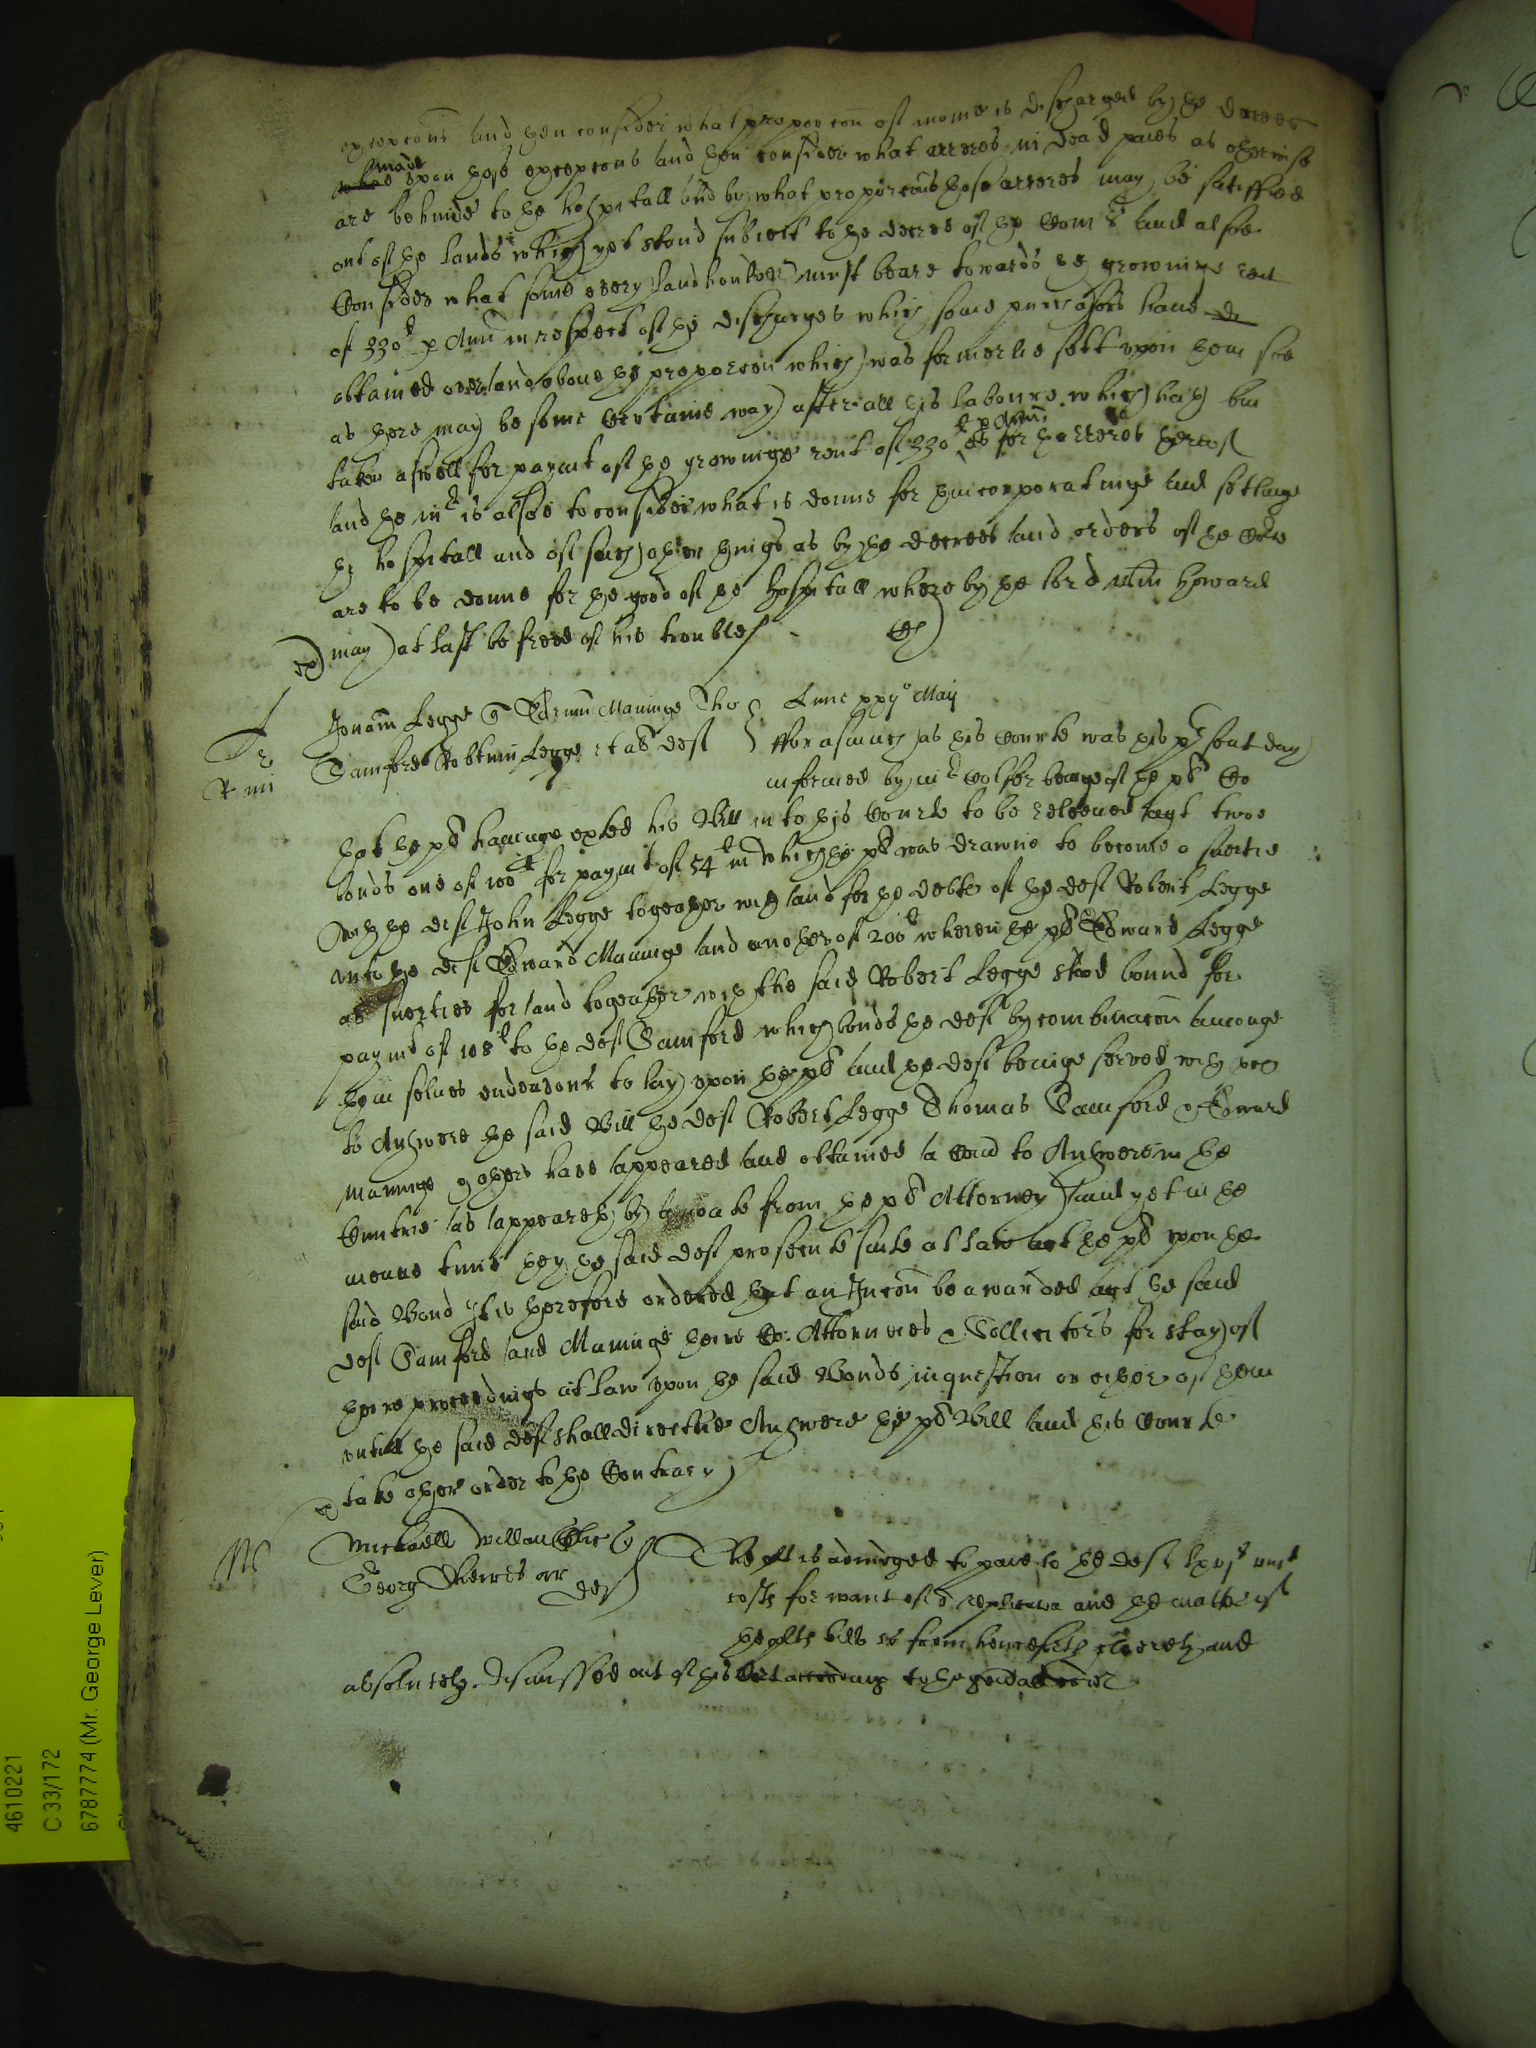 excepcons and then consider what proporcon of monie is discharged by the decrees
made upon those excepcons and then consider what arreres in dead paies as otherwise
are behinde to the hospitall and by what proporcons those arreres may be satisffied
out of the lands which yet stand subiect to the decree of the Comrs and alsoe
Consider what some every landholder must beare towards the growinge rent
of 330l p Ann in respect of the discharges which some purchasors haue
obtained over and aboue the proporcon which was formerlie sett upon them soe
as there may be some certaine way after all this labour which hath bin
taken aswell for paymt of the growinge rent of 330l p Ann as for the arreres thereof
and the mr is alsoe to consider what is donne for thincorporatinge and setlinge
the hospitall and of such other things as by the decrees and orders of the Corte
are to be donne for the good of the hospitall whereby the lord Willm Howard
may at last be freed of his troubles
Legge Edrum Maninge Tho
Samford Robtum Legge et als def
Lune xxij° Maij
fforasmuch as this Courte was this pnt day
informed by mr beinge of the plts Co
that the plt havinge exhited his Bill into this Courte to be releeved agt twoe
bonds one of 100l for paymt of 54l in which the plt was drawne to become a suertie
with the deft John Legge togeather with and for the debte of the deft Robert Legge
unto the deft Edward Maninge and another of 200l wherein the plt Edward Legge
as suerties for and togeather with the said Robert Legge stood bound for
paymt of 108l to the deft Samford which bonds the defts by combinacon amonge
them selues endeavour to lay upon the plt and the defts beinge served with pces
to Answere the said Bill the defts Robert Legge Thomas Samford & Edward
Maninge & others have appeared and obtained a Comd to Answere in the
Cuntrie as appeareth by from the plts Attorney and yet in the
meane time they the said defts prosecute suite at law agt the plt upon the
said Bond It is therefore ordered that an Iniuncon be awarded agt the said
defts Samford and Maninge theire Co: Attornies & Sollicitors for stay of
theire proceedings at law upon the said Bonds in question or either of them
untill the said defts shall directlie Answere the plts Bill and this Courte
take other order to the Contrary
Michaell quer
Georg ar def
The plt is adiudged to paie to the deft
costs for want of a and the matter of
the plts bill is from henceforth cleerely and
absolutely dismissed out of this Cort accordinge to the generall order
4610221
C 33/172
6787774 (Mr. George Lever)